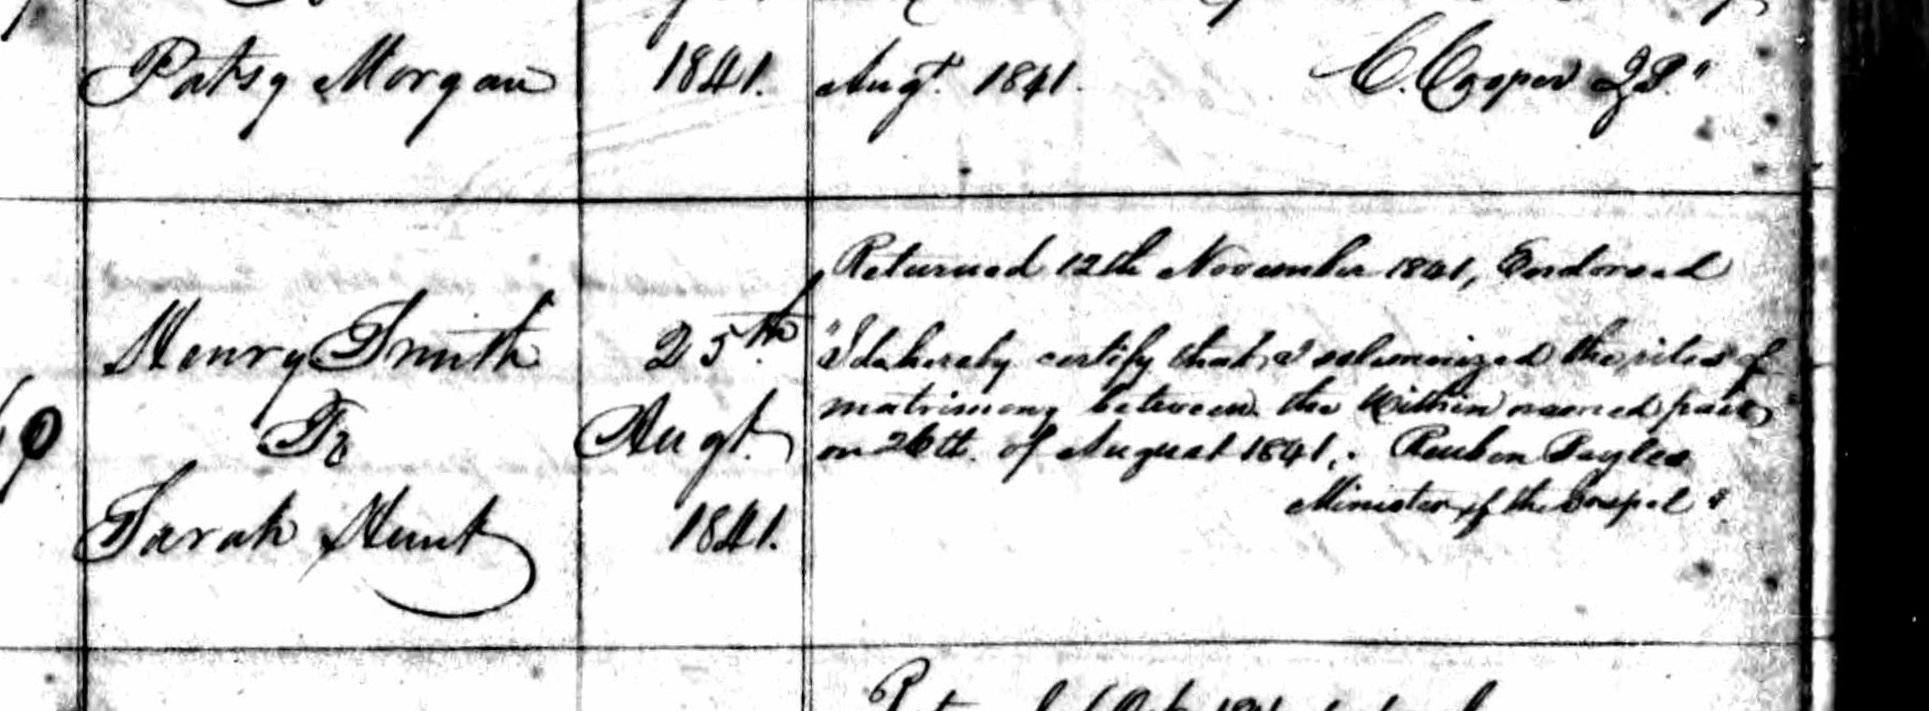 Patsy Morgan
1841.
Augt. 1841.
C. Cooper J.P."
Henry Smith
To
Sarah Hunt
25th.
Augt.
1841.
Returned 12th November 1841, Endorsed
"I do hereby certify that I solemnized the rites of
matrimony between the within named pair
on 26th. of August 1841. Reuben Sayles
Minister of the Gospel"